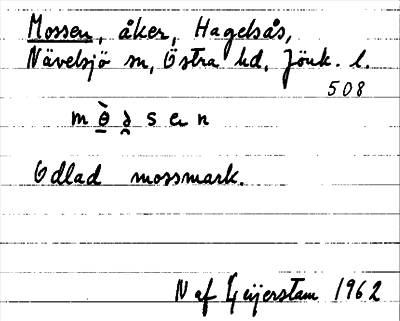 Mossen, åker, Hagelsås,
Nävelsjö sn, Östra hd, Jönk. l.
508
Odlad mossmark.
N af Geijerstam 1962